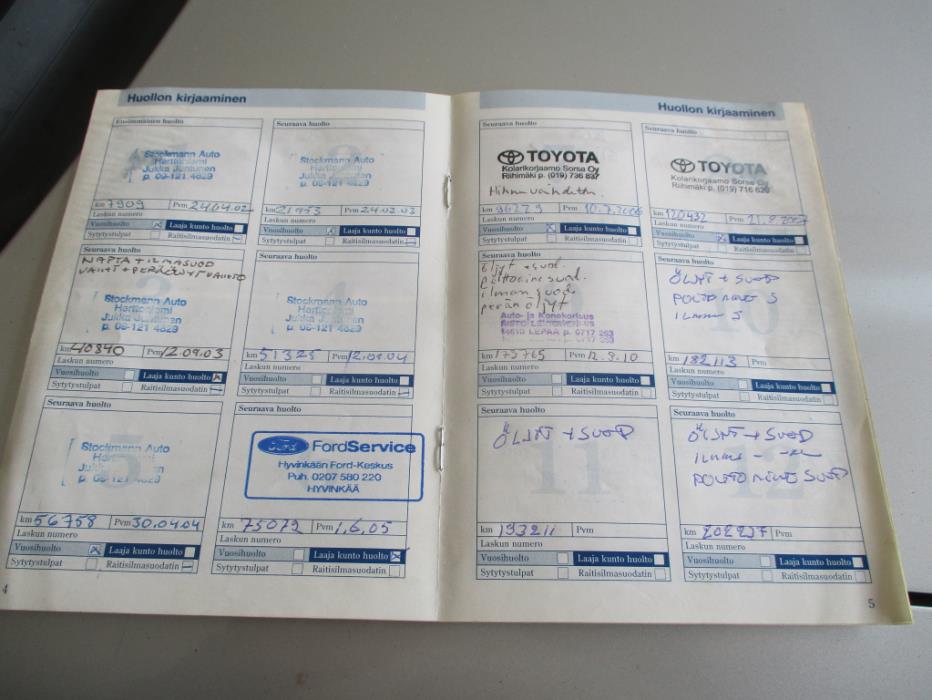 Huollon kirjaaminen
Ensimmäinen huolto
Stockmann Auto
Herttoniemi
Jukka Juntunen
p. 09-121 4629
km 7909 Pvm 24.04.02
Laskun numero
Vuosihuolto Laaja kunto huolto
Sytytystulpat Raitisilmasuodatin
Seuraava huolto
Stockmann Auto
Herttoniemi
Jukka Juntunen
p. 09-121 4629
km 21953 Pvm 24.02.03
Laskun numero
Vuosihuolto Laaja kunto huolto
Sytytystulpat Raitisilmasuodatin
Seuraava huolto
Stockmann Auto
Herttoniemi
Jukka Juntunen
p. 09-121 4629
km 40840 Pvm 12.09.03
Laskun numero
Vuosihuolto Laaja kunto huolto
Sytytystulpat Raitisilmasuodatin
Seuraava huolto
Stockmann Auto
Herttoniemi
Jukka Juntunen
p. 09-121 4629
km 51325 Pvm 12.01.04
Laskun numero
Vuosihuolto Laaja kunto huolto
Sytytystulpat Raitisilmasuodatin
Seuraava huolto
Stockmann Auto
Herttoniemi
Jukka Juntunen
p. 09-121 4629
km 56758 Pvm 30.04.04
Laskun numero
Vuosihuolto Laaja kunto huolto
Sytytystulpat Raitisilmasuodatin
Seuraava huolto
Ford FordService
Hyvinkään Ford-Keskus
Puh. 0207 580 220
HYVINKÄÄ
km 75072 Pvm 1.6.05
Laskun numero
Vuosihuolto Laaja kunto huolto
Sytytystulpat Raitisilmasuodatin
4
Huollon kirjaaminen
Seuraava huolto
TOYOTA
Kolarikorjaamo Sorsa Oy
Riihimäki p. (019) 736 637
Hihna vaihdettu
km 96279 Pvm 10.7.2006
Laskun numero
Vuosihuolto Laaja kunto huolto
Sytytystulpat Raitisilmasuodatin
Seuraava huolto
TOYOTA
Kolarikorjaamo Sorsa Oy
Riihimäki p. (019) 716 620
km 120432 Pvm 21.8.2007
Laskun numero
Vuosihuolto Laaja kunto huolto
Sytytystulpat Raitisilmasuodatin
Seuraava huolto
öljyt + suod.
ilman suod.
perän öljyt
Auto- ja Konekorjaus
LEPAA p. 0717 263
km 173765 Pvm 12.8.10
Laskun numero
Vuosihuolto Laaja kunto huolto
Sytytystulpat Raitisilmasuodatin
ÖLJYT + SUOD
km 182113 Pvm
Laskun numero
Vuosihuolto Laaja kunto huolto
Sytytystulpat Raitisilmasuodatin
Seuraava huolto
ÖLJYT + SUOD
11
km 193211 Pvm
Laskun numero
Vuosihuolto Laaja kunto huolto
Sytytystulpat Raitisilmasuodatin
Seuraava huolto
ÖLJYT + SUOD
km 202237 Pvm
Laskun numero
Vuosihuolto Laaja kunto huolto
Sytytystulpat Raitisilmasuodatin
5